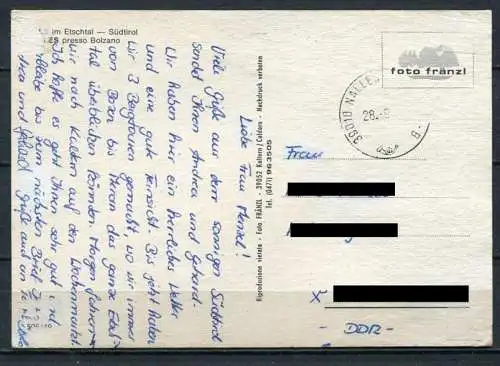 im Etschtal — Südtirol
presso Bolzano
Liebe Frau Menzel!
Viele Grüße aus dem sonnigen Südtirol
sendet Ihnen Andrea und Gerhard.
Wir haben hier ein herrliches Wetter
und eine gute Fernsicht. Bis jetzt haben
wir 3 Bergtouren gemacht, wo wir immer
von Bozen bis Meran das ganze Etsch-
tal überblicken könnten. Morgen fahren
wir nach Kastelruth auf den Wochenmarkt.
Ich hoffe es geht Ihnen sehr gut und
verbleibe bis zum nächsten Brief
Grüße auch an
Riproduzione vietata - Foto FRÄNZL - 39052 Kaltern/Caldaro - Nachdruck verboten
Tel. (0471) 963505
foto fränzl
39010 NALLES
28.
Frau
X
- DDR -